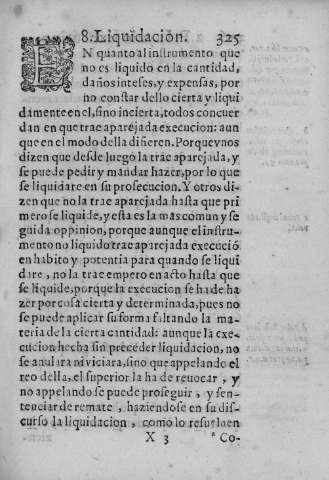 8. Liquidaciòn. 325
EN quanto al instrumento que
no es liquido en la cantidad,
daños inteses, y expensas, por
no constar dello cierta y liqui
damente en el, sino incierta, todos concuer
dan en que trae aparejada execucion: aun
que en el modo della difieren. Porque vnos
dizen que desde luego la trae aparejada, y
se puede pedir y mandar hazer, por lo que
se liquidare en su prosecucion. Y otros di-
zen que no la trae aparejada hasta que pri
mero se liquide, y esta es la mas comun y se
guida oppinion, porque aunque el instru-
mento no liquido trae aparejada execució
en habito y potentia para quando se liqui
dare, no la trae empero en acto hasta que
se liquide, porque la execucion se ha de ha
zer por cosa cierta y determinada, pues no
se puede aplicar su forma faltando la ma-
teria de la cierta cantidad: aunque la exe-
cucion hecha sin preceder liquidacion, no
se anulara ni viciara, sino que appelando el
reo della, el superior la ha de reuocar, y
no appelando se puede proseguir, y sen-
tenciar de remate, haziendose en su dis-
curso la liquidacion, como lo resueluen
X 3 * Co-